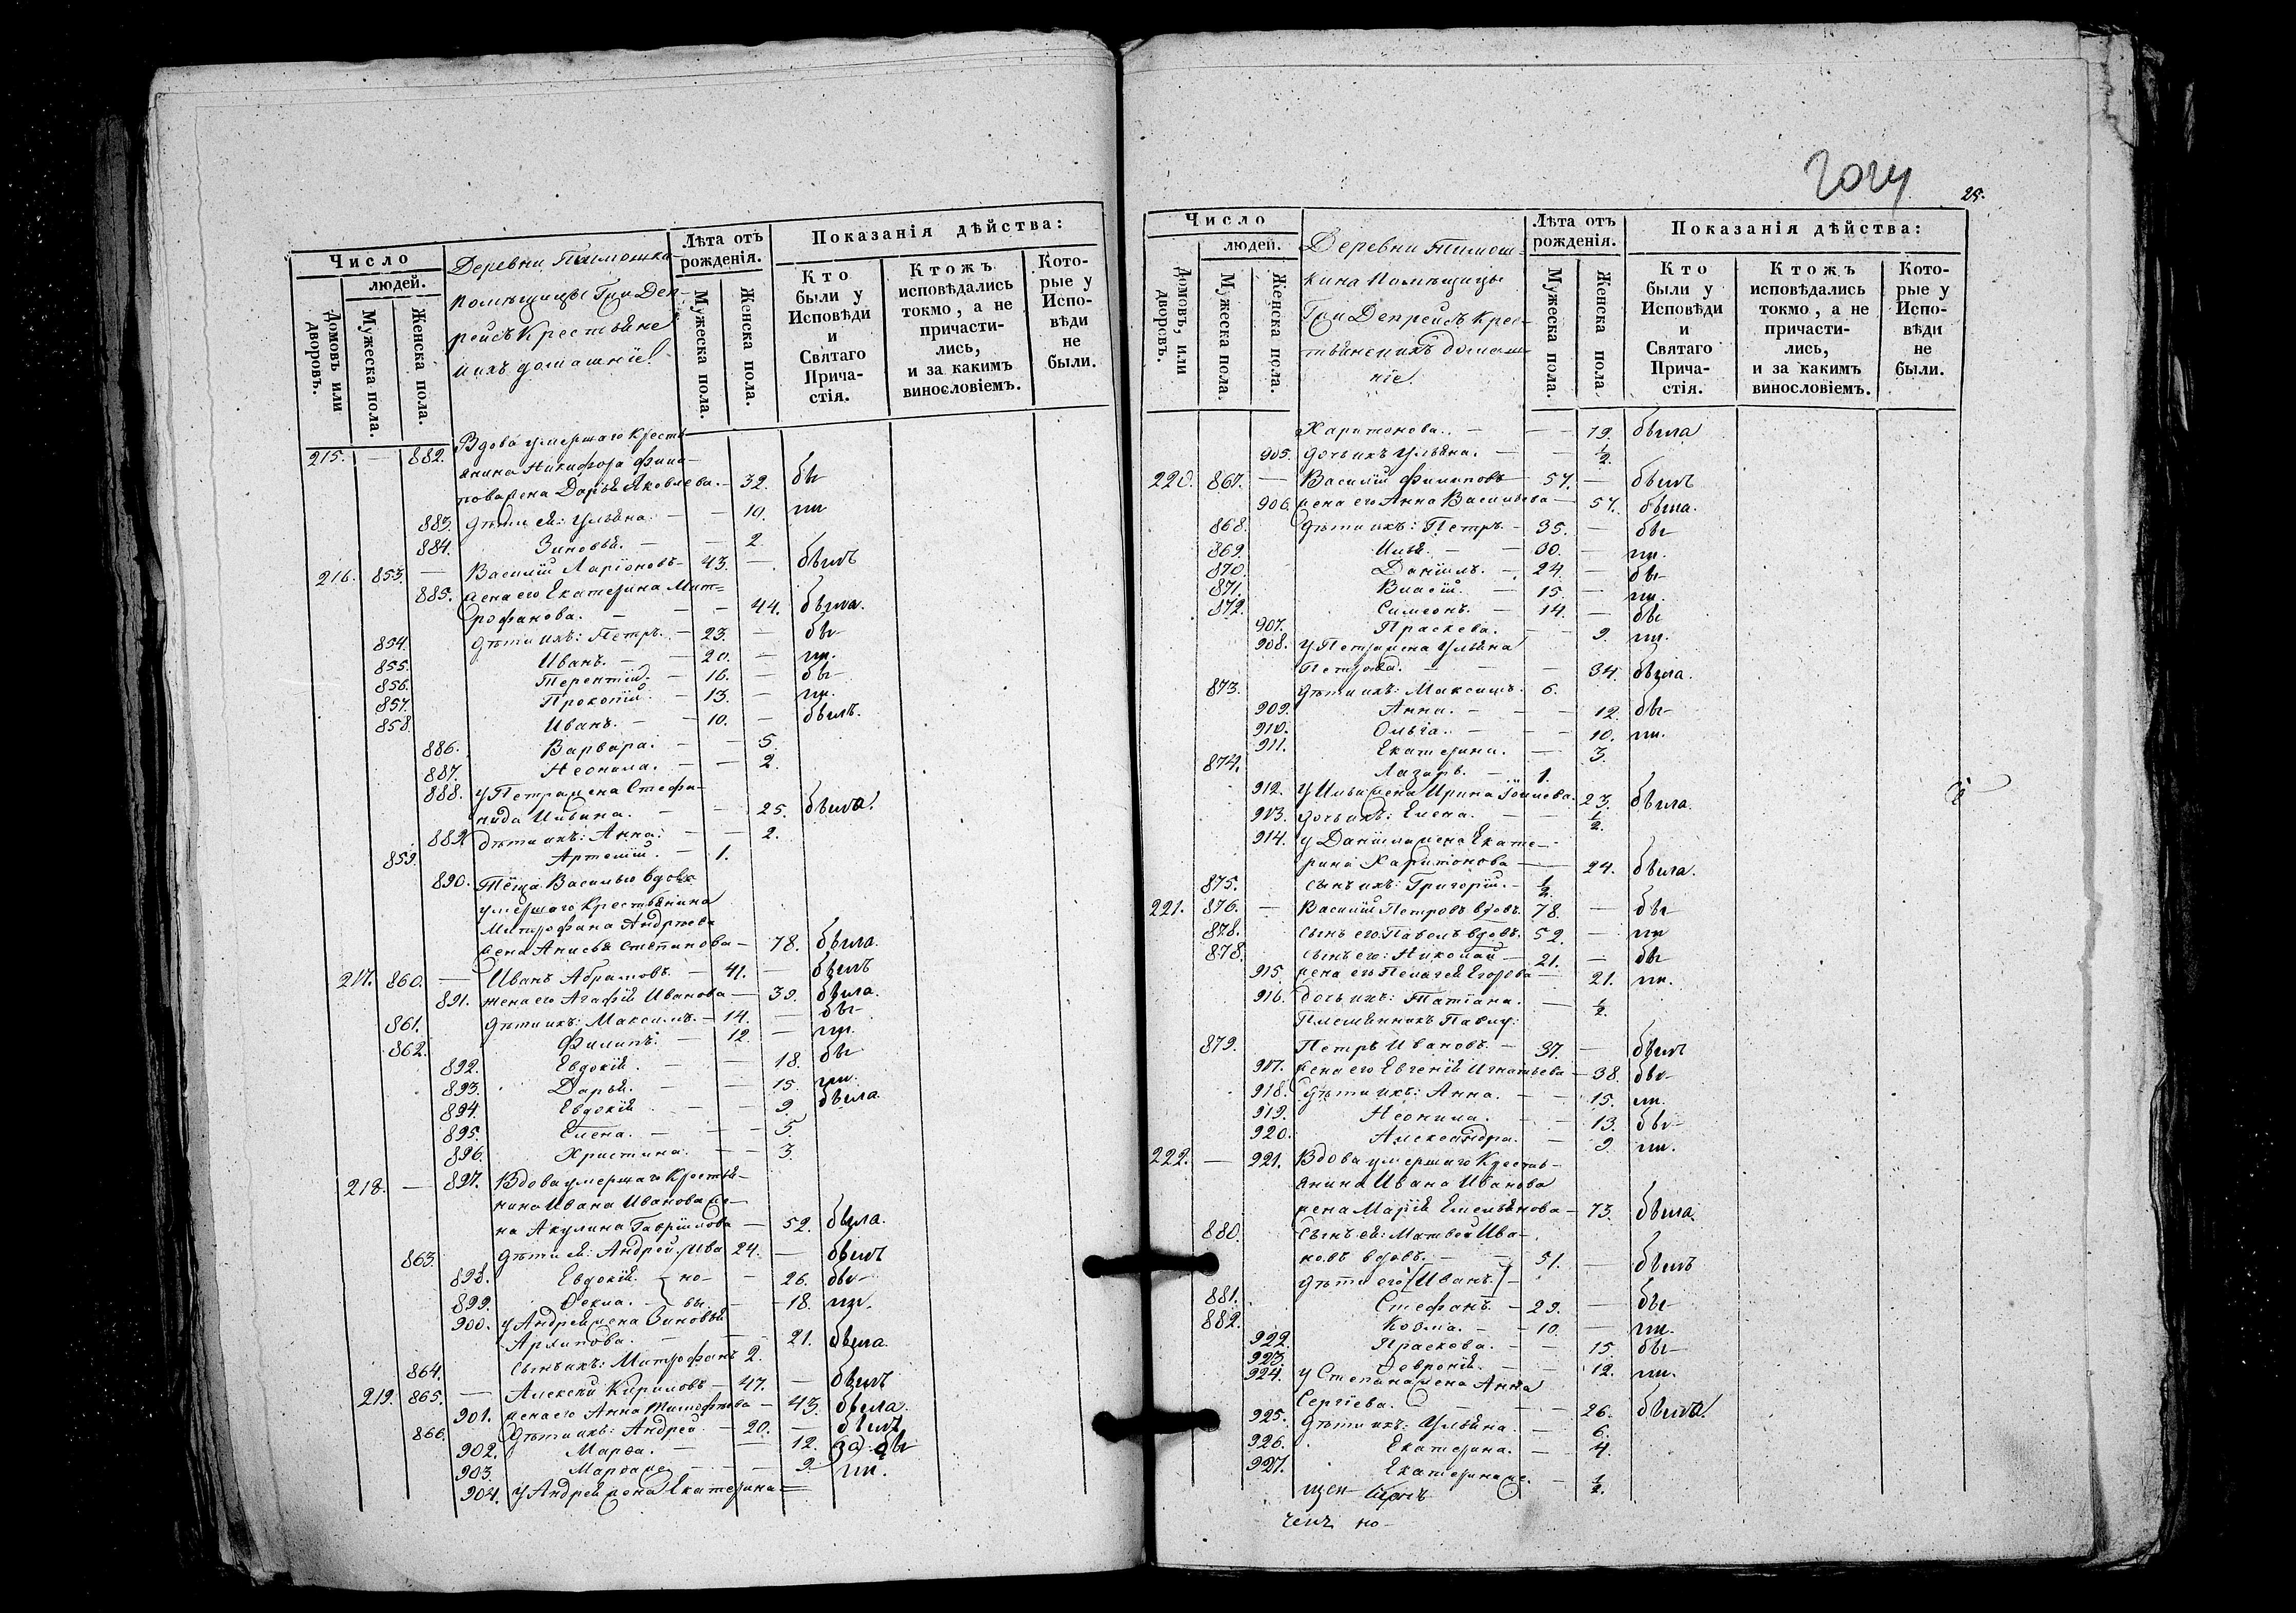 Число
людей.
Домовъ или дворовъ.
Мужеска пола.
Женска пола.
Деревни Тимошки-
помѣщицы Гри Деп-
рейсъ Крестьяне
и ихъ домашніе.
Лѣта отъ рожденія.
Мужеска пола.
Женска пола.
Показанія дѣйства:
Кто были у Исповѣди и Святаго Причастія.
Ктожъ исповѣдались токмо, а не причастились, и за какимъ винословіемъ.
Которые у Исповѣди не были.
215. — 882. Вдова умершаго Кресть-
янина Никифора Фили-
пова жена Дарья Яковлева. — 32. бы
883. дѣти ея: Ульяна. — — 10. ла
884. Зиновья. — — 2.
216. 853. — Василій Ларіоновъ — 43. — былъ
885. жена его Екатерина Мит-
рофанова. — — 44. была.
854. дѣти ихъ: Петръ. — 23. — бы
855. Иванъ. — — 20. — ли.
856. Терентій. — 16. — бы
857. Прокопій. — 13. — ли.
858. Иванъ. — — 10. — былъ.
886. Варвара. — — 5.
887. Неонила. — — 2.
888. у Петра жена Стефа-
нида Ильина. — — 25. была.
889 дѣти ихъ: Анна: — — 2.
859. Артемій. — 1.
890. Тёща Василью вдова
умершаго Крестьянина
Митрофана Андрѣева
жена Анисья Степанова — 78. была.
217. 860. — Иванъ Абрамовъ. — 41. — былъ
891. жена его Агафія Иванова — 39. была.
861. дѣти ихъ: Максимъ. — 14. — бы
862. Филипъ. — 12. — ли.
892. Евдокія. — — 18. бы
893. Дарья. — — 15. ли.
894. Евдокія — — 9. была
895. Елена. — — 5.
896. Христина. — — 3.
218. — 897. Вдова умершаго Крестья-
нина Ивана Иванова же-
на Акулина Гавріилова — 52. была.
863. дѣти ея: Андрей 24. — былъ
898. Евдокія. — 26. бы
899. Фекла. — 18. ли.
900. у Андрея жена Зиновья
Архипова. — — 21. была
864. сынъ ихъ: Митрофанъ 2.
219. 865. — Алексѣй Кириловъ — 47. — былъ
901. жена его Анна Тимофѣева — 43. была.
866. дѣти ихъ: Андрей — 20. — былъ
902. Марфа. — — 12. бы
903. Марфа же — — 9. ли.
904. у Андрея жена Екатерина
2024
25.
Число
людей.
Домовъ, или дворовъ.
Мужеска пола.
Женска пола.
Деревни Тимош-
кина Помѣщицы
Гри Депрейсъ Крес-
тьяне и ихъ домаш-
ніе.
Лѣта отъ рожденія.
Мужеска пола.
Женска пола
Показанія дѣйства:
Кто были у Исповѣди и Святаго Причастія.
Ктожъ исповѣдались токмо, а не причастились, и за какимъ винословіемъ.
Которые у Исповѣди не были.
Харитонова. — — 19. была
905. дочь ихъ Ульяна. — — 1/2.
220. 867. — Василій Филиповъ 57. — былъ
906. жена его Анна Васильева — 57. была.
868. дѣти ихъ: Петръ — 35. — бы
869. Илья. — — 30. — ли.
870. Даніилъ. — 24. — бы
871. Власій. — 15. — ли.
872. Симеонъ. — 14. — бы
907. Праскева. — — 9. ли.
908. у Петра жена Ульяна
Петрова. — — — 34. была.
873. дѣти ихъ: Максимъ. 6.
909. Анна. — — — 12. бы
910. Ольга. — — — 10. ли.
911. Екатерина. — 3.
874. Лазарь. — 1.
912. у Ильи жена Ирина 23. была.
913. дочь ихъ: Елена. — — 1/2.
914. у Даніила жена Екате-
рина Харитонова — — 24. была.
875. сынъ ихъ: Григорій. — 1/2.
221. 876. — Василій Петровъ вдовъ. 78. — бы
878. сынъ его: Павелъ вдовъ. 52. — ли
878. сынъ его: Николай — 21. — бы
915. жена его Пелагея Егорова — 21. ли.
916. дочь ихъ: Татіана. — 1/2.
Племянникъ Павлу:
879. Петръ Ивановъ. — 37. — былъ
917. жена его Евгенія Игнатьева — 38. бы
918. дѣти ихъ: Анна. — — 15. ли.
919. Неонила. — — 13. бы
920. Александра. — 9. ли.
222. — 921. Вдова умершаго Кресть-
янина Ивана Иванова
жена Марія Емельянова — 73. была.
880. Сынъ ея: Матвей Ива-
новъ вдовъ. — — 51. — былъ
дѣти его [Иванъ.] —
881. Стефанъ. — 29. — бы
882. Козма. — — 10. — ли.
922. Праскова. — — 15. бы
923. Февронія. — — 12. ли.
924. у Степана жена Анна
Сергіева. — — — 26. была.
925. дѣти ихъ: Ульяна. — 6.
926. Екатерина. — 4.
927. Екатерина же. — 1/2.